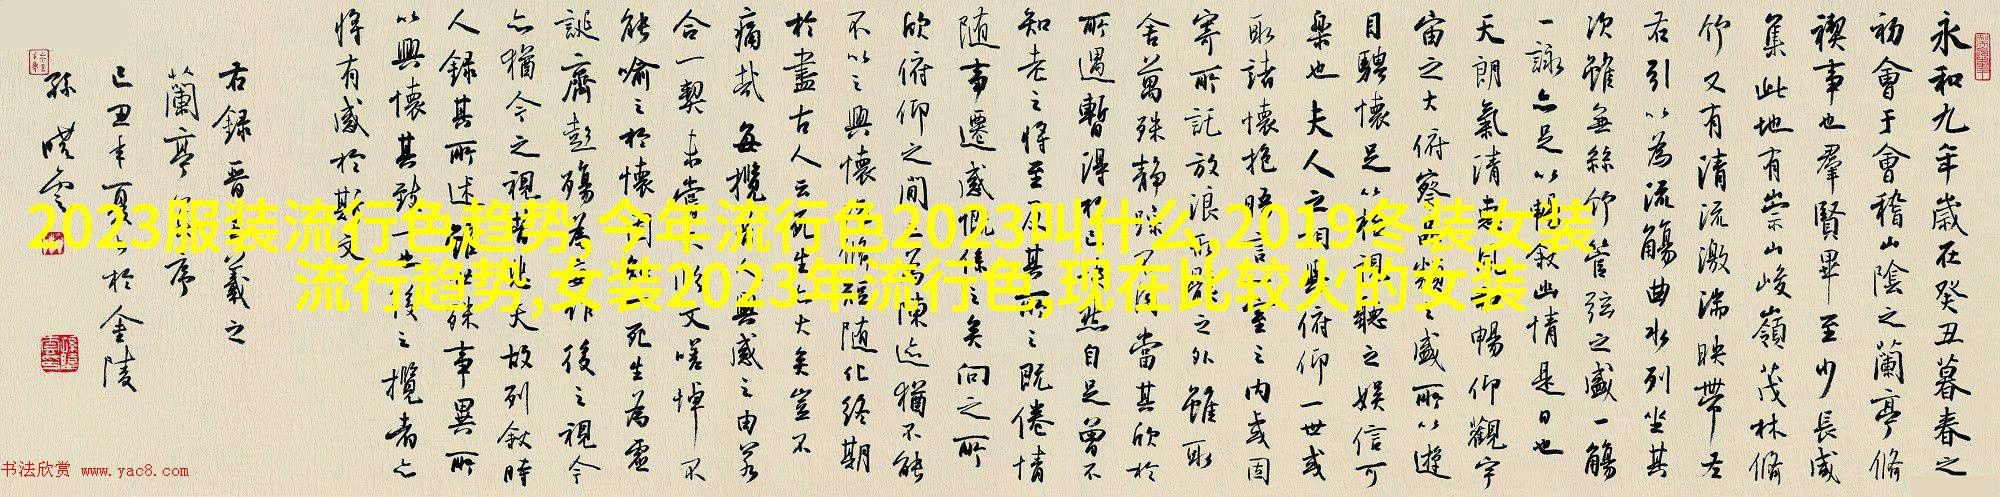 永和九年歲在癸丑暮春之
初會于會稽山陰之蘭亭脩
禊事也羣賢畢至少長咸
集此地有崇山峻嶺茂林脩
竹又有清流激湍映帶左
右引以為流觴曲水列坐其
次雖無絲竹管弦之盛一觴
一詠亦足以暢敘幽情是日也
天朗氣清惠風和暢仰觀宇
宙之大俯察品類之盛所以遊
目騁懷足以極視聽之娛信可
樂也夫人之相與俯仰一世或
取諸懷抱晤言一室之內或因
寄所託放浪形骸之外雖取
舍萬殊靜躁不同當其欣於
所遇暫得於己快然自足曾不
知老之將至及其所之既倦情
隨事遷感慨係之矣向之所
欣俯仰之間以為陳迹猶不能
不以之興懷況脩短隨化終期
於盡古人云死生亦大矣豈不
痛哉每攬昔人興感之由若
合一契未嘗不臨文嗟悼不
能喻之於懷固知一死生為虛
誕齊彭殤為妄作後之視今
亦猶今之視昔悲夫故列敘時
人錄其所述雖世殊事異所
以興懷其致一也後之攬者亦
將有感於斯文
右錄晉王羲之
蘭亭集序
己丑年夏於金陵
孫曉雲
2023服装流行色趋势,今年流行色2023叫什么,2019冬装女装
流行趋势,女装2023年流行色,现在比较火的女装
书法欣赏 www.yac8.com